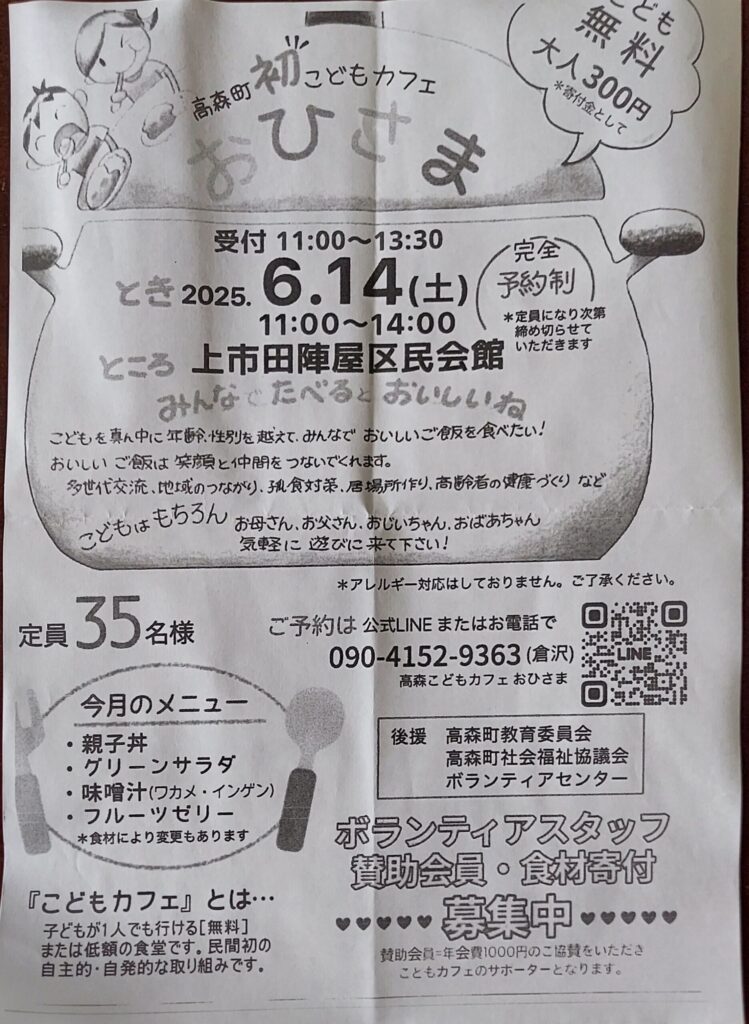 こども
無料
大人300円
*寄付金として
高森町 初 こどもカフェ
おひさま
受付 11:00〜13:30
とき 2025. 6.14(土)
11:00〜14:00
完全
予約制
*定員になり次第
締め切らせて
いただきます
ところ 上市田陣屋区民会館
みんなでたべるとおいしいね
こどもを真ん中に年齢、性別を越えて、みんなで おいしいご飯を食べたい!
おいしい ご飯は 笑顔と仲間をつないでくれます。
多世代交流、地域のつながり、孤食対策、居場所作り、高齢者の健康づくり など
こどもはもちろん お母さん、お父さん、おじいちゃん、おばあちゃん
気軽に 遊びに 来て下さい!
*アレルギー対応はしておりません。ご了承ください。
定員 35名様
ご予約は 公式LINE またはお電話で
090-4152-9363 (倉沢)
高森こどもカフェ おひさま
LINE
今月のメニュー
・親子丼
・グリーンサラダ
・味噌汁(ワカメ・インゲン)
・フルーツゼリー
*食材により変更もあります
後援 高森町教育委員会
高森町社会福祉協議会
ボランティアセンター
ボランティアスタッフ
賛助会員・食材寄付
♥♥♥♥♥募集中♥♥♥♥♥
賛助会員=年会費1000円のご協賛をいただき
こどもカフェのサポーターとなります。
『こどもカフェ』とは…
子どもが1人でも行ける[無料]
または低額の食堂です。民間初の
自主的・自発的な取り組みです。